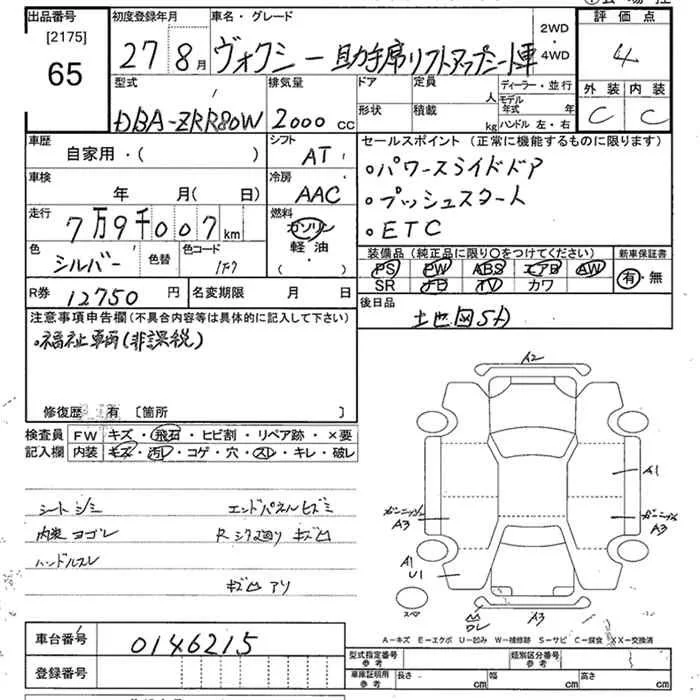 出品番号 初度登録年月 車名・グレード 2WD・4WD 評価点
[2175]
65 27 8月 ヴォクシー 助手席リフトアップシート車 4
型式 排気量 ドア 定員 人 ディーラー・並行 外装 内装
モデル年式 年
DBA-ZRR80W 2000cc 形状 積載 kg ハンドル 左・右 C C
車歴 シフト セールスポイント(正常に機能するものに限ります)
自家用・( ) AT 。パワースライドドア
車検 冷房 。プッシュスタート
年 月(日) AAC 。ETC
走行 燃料
7万9千007km ガソリン
軽・油
・( )
色 色替 色コード 装備品(純正品に限り〇をつけてください) 新車保証書
シルバー 1F7 PS PW ABS エアB AW 有・無
SR ナビ TV カワ
R券 12750円 名変期限 月 日 後日品
土地図SD
注意事項申告欄(不具合内容等は具体的に記入して下さい)
。福祉車輌(非課税)
修復歴 有 〔箇所 〕
検査員 FW キズ・飛石・ヒビ割・リペア跡・×要
記入欄 内装 キズ・汚レ・コゲ・穴・スレ・キレ・破レ
シートシミ エンドパネルヒズミ
内装ヨゴレ キズ凹
ハンドルスレ
キズ凹アリ
A2
A1
ガーニッシュ A3
ガーニッシュ A3
A1
U1
スペア
凹
ワレ
A3
A-キズ E-エクボ U-凹み W-補修跡 S-サビ C-腐食 XX-交換済
車台番号 0146215
登録番号
型式指定番号 参考 類別区分番号 参考
車庫証明用 参考 長さ cm 幅 cm 高さ cm